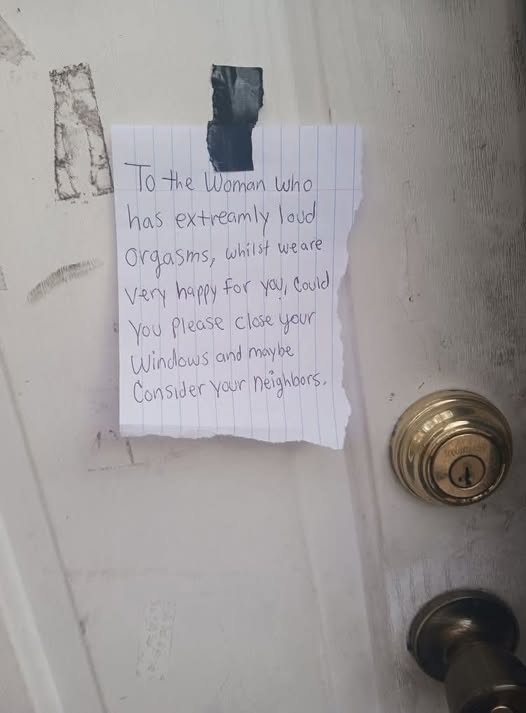 To the Woman who
has extreamly loud
orgasms, whilst we are
very happy for you, Could
you please close your
Windows and maybe
Consider your neighbors.